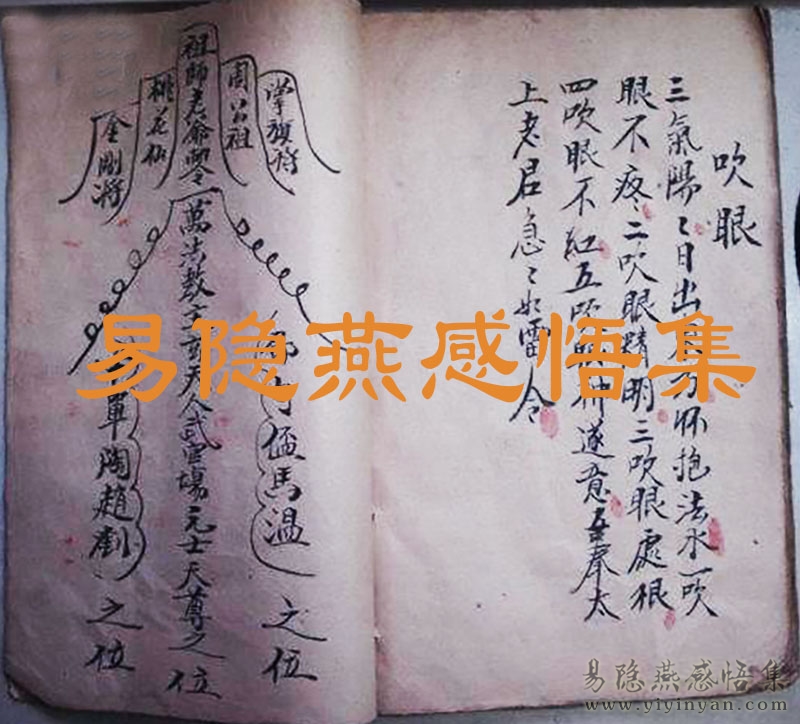 吹眼
三氣陽〻日出東方怀抱法水一吹
眼不疼二吹眼睛明三吹眼處根
四吹眼不紅五吹眼神遂意吾奉太
上老君急〻如雷令
掌旗將
周公祖
祖師老爺雷令
桃花仙
金剛將
猛馬溫之位
萬法教主玄天人武當場元士天尊之位
軍陶趙劉之位
易隐燕感悟集
易隐燕感悟集
www.yiyinyan.com